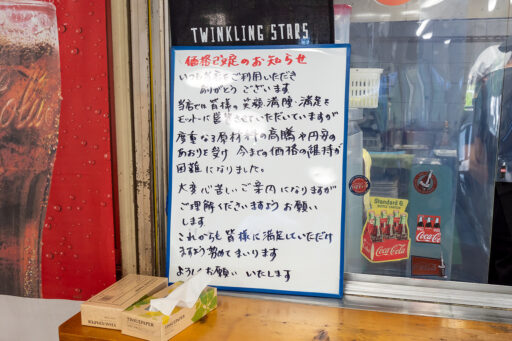 TWINKLING STARS
価格改定のお知らせ
いつも当店をご利用いただき
ありがとうございます
当店では皆様の笑顔満腹・満足を
モットーに営業させていただいていますが
度重なる原材料の高騰や円安の
あおりを受け 今までの価格の維持が
困難になりました。
大変心苦しいご案内になりますが
ご理解くださいますようお願い
します
これからも皆様に満足していただけ
ますよう努めてまいります
よろしくお願いいたします
Coca-Cola
Coca-Cola